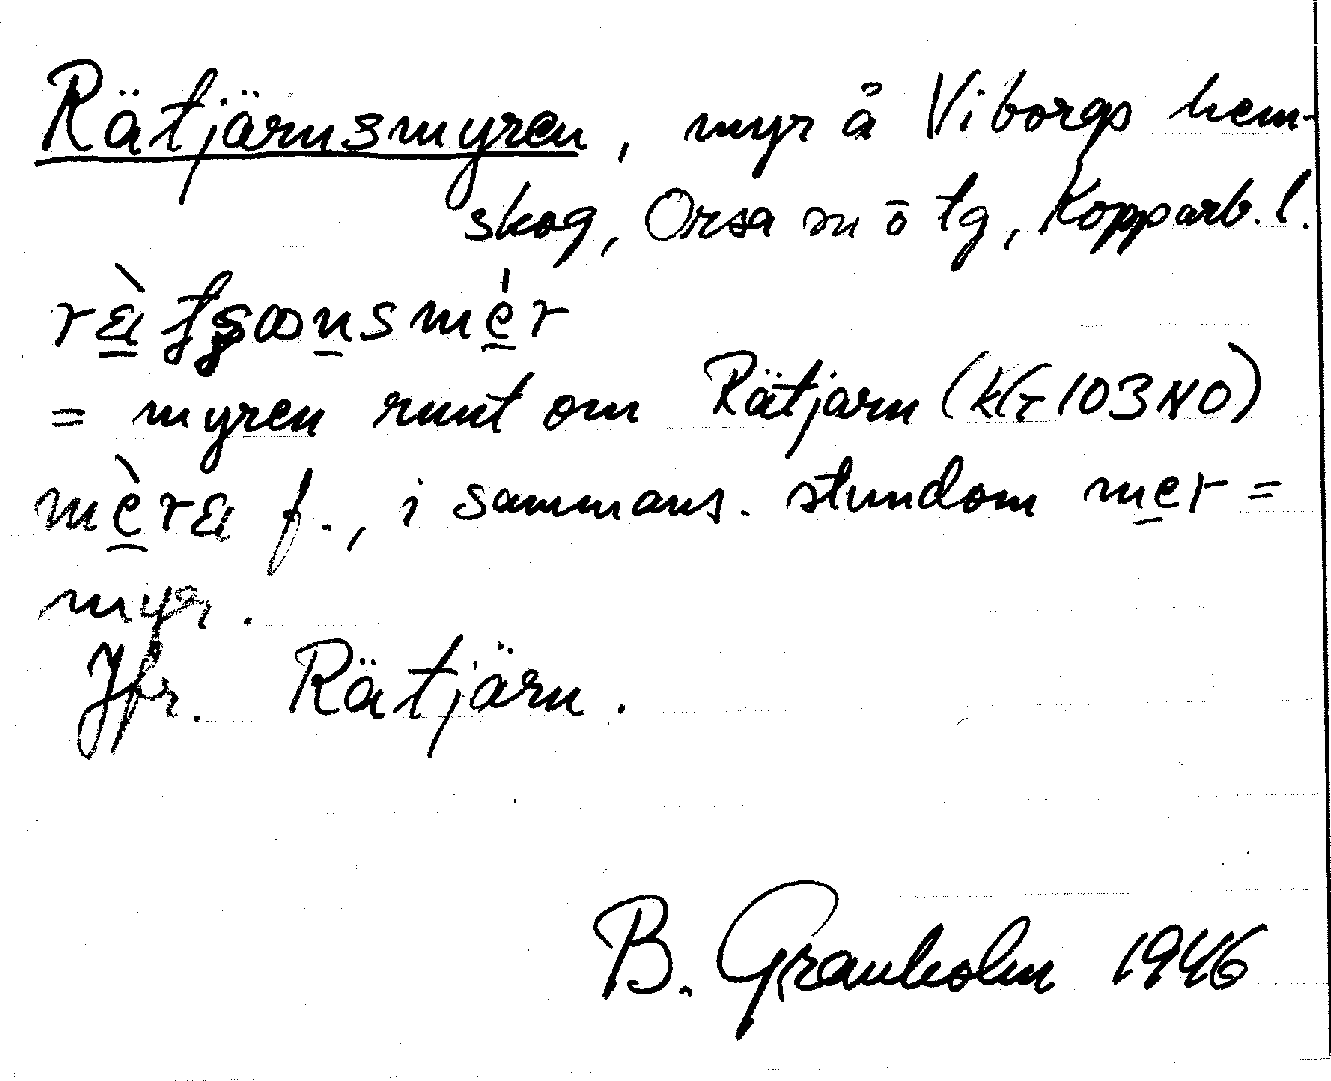 Rätjärnsmyren, myr å Viborgs hem-
skog, Orsa sn ō tg, Kopparb. l.
= myren runt om Rätjärn (KG 103 NO)
f., i sammans. stundom mer =
myr.
Jfr. Rätjärn.
B. Granholm 1946